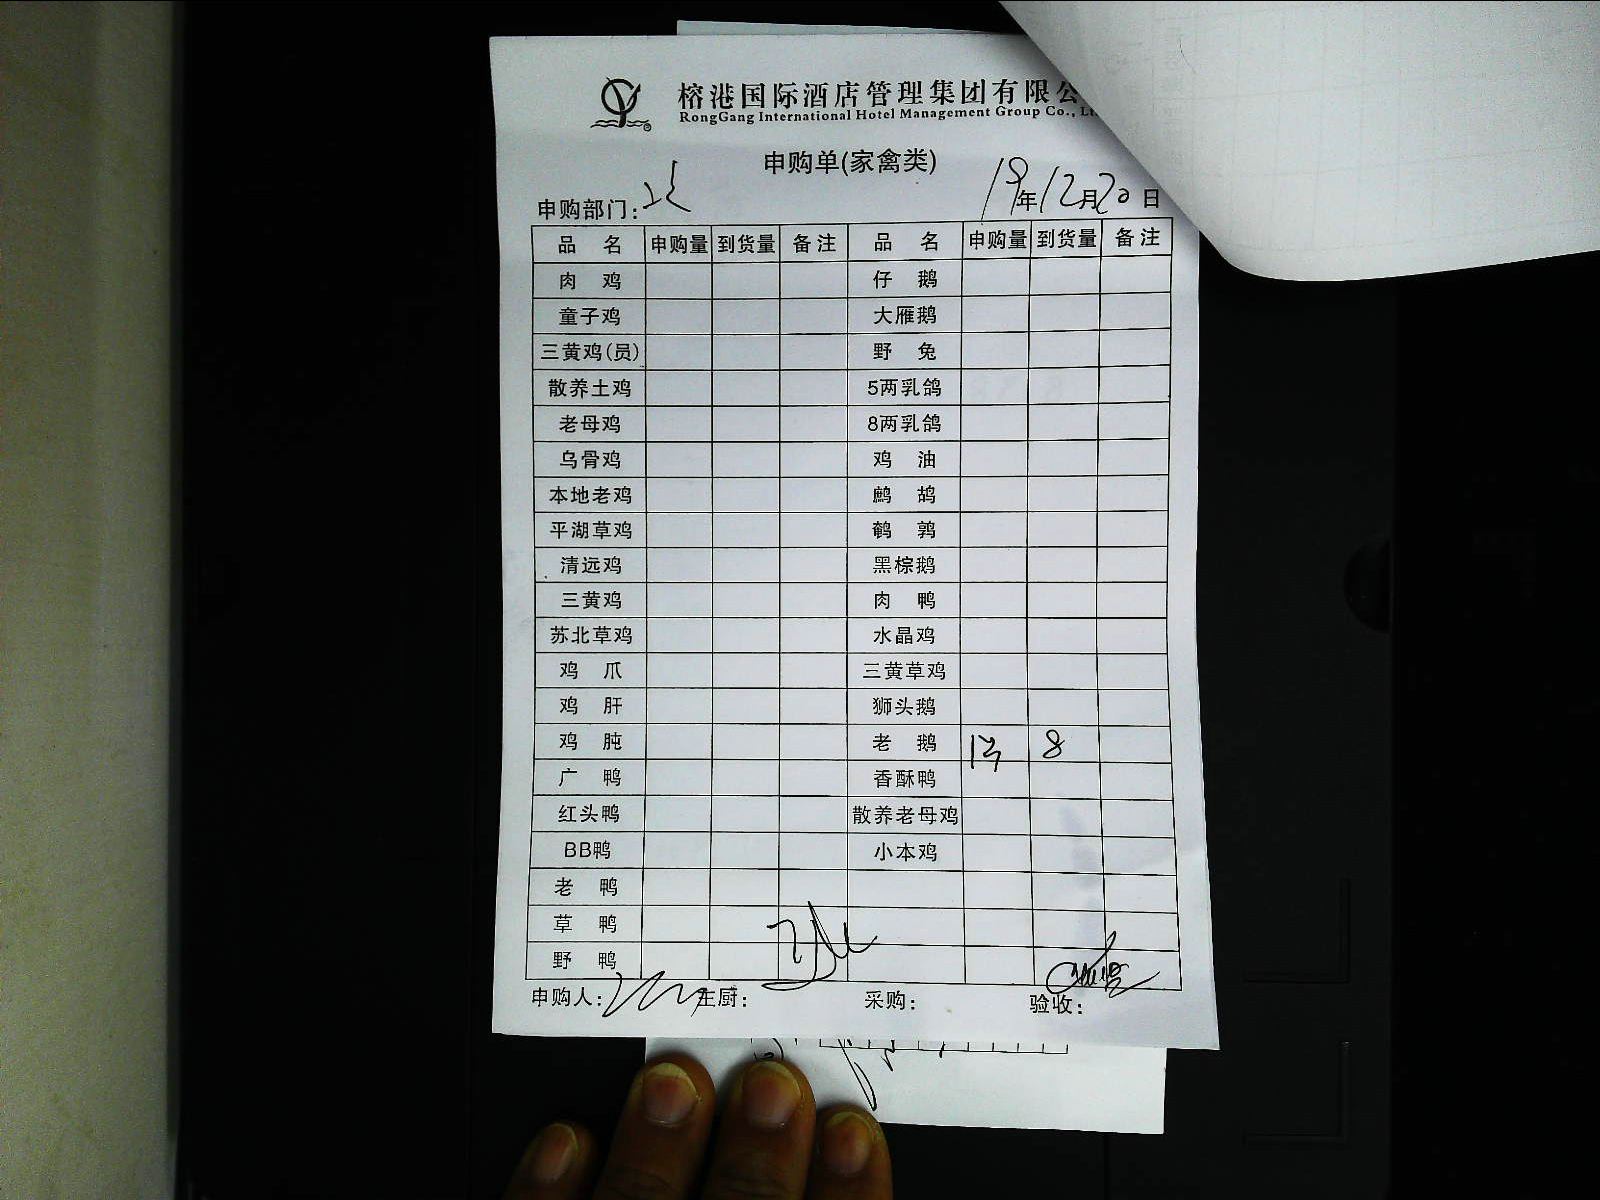 榕港国际酒店管理集团有限公
RongGang International Hotel Management Group Co., Lt
申购单(家禽类)
申购部门: 19年12月20日
品 名 申购量 到货量 备注 品 名 申购量 到货量 备注
肉 鸡 仔 鹅
童子鸡 大雁鹅
三黄鸡(员) 野 兔
散养土鸡 5两乳鸽
老母鸡 8两乳鸽
乌骨鸡 鸡 油
本地老鸡 鹧 鸪
平湖草鸡 鹌 鹑
清远鸡 黑棕鹅
三黄鸡 肉 鸭
苏北草鸡 水晶鸡
鸡 爪 三黄草鸡
鸡 肝 狮头鹅
鸡 肫 老 鹅 8
广 鸭 香酥鸭
红头鸭 散养老母鸡
BB鸭 小本鸡
老 鸭
草 鸭
野 鸭
申购人: 主厨: 采购: 验收: